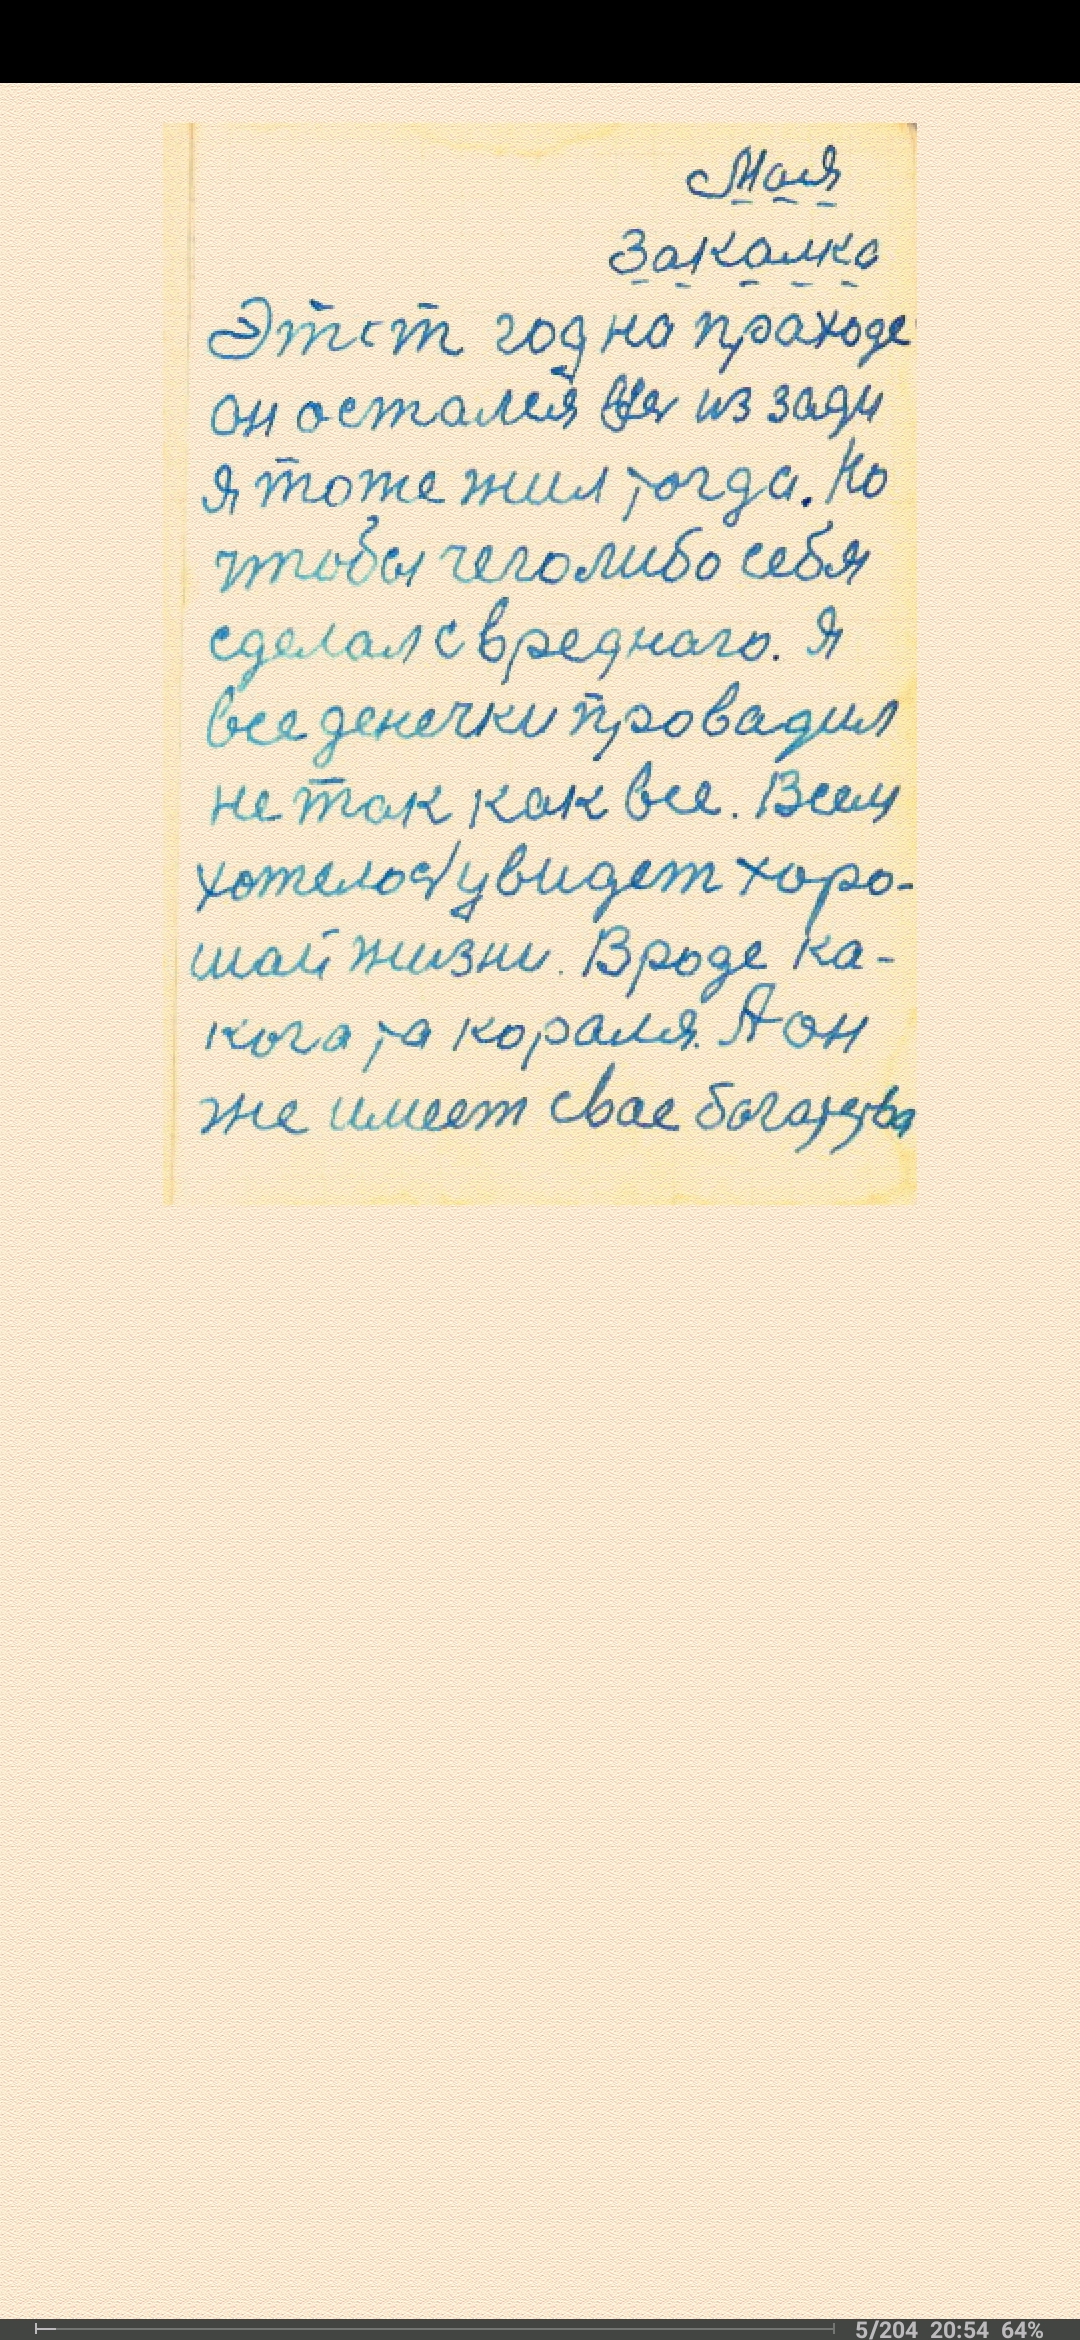 Моя
Закалка
Этот год на праходе
он остался из зади
Я тоже жил тогда. Но
чтобы чеголибо себя
сделал с вреднаго. Я
все денечки провадил
не так как все. Всем
хотелось увидет харо-
шай жизни. Вроде ка-
кога та кораля. А он
же имеет свае богатства
5/204 20:54 64%